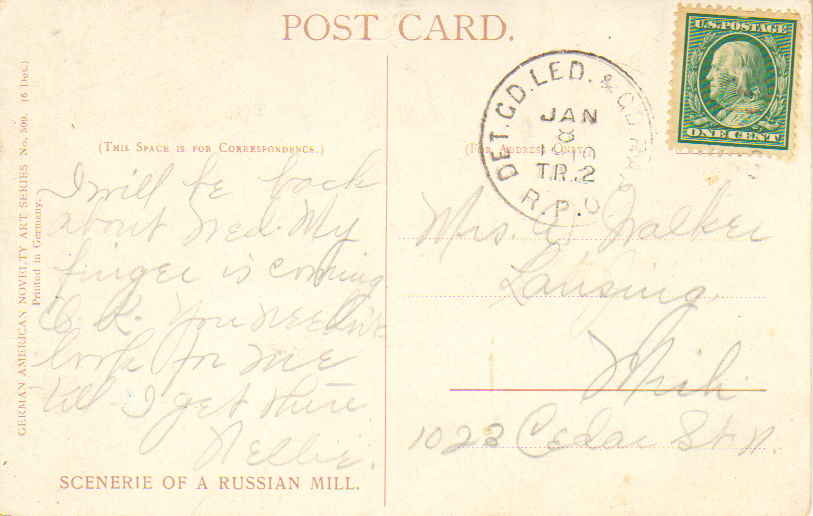 POST CARD.
U.S. POSTAGE
ONE CENT
DET. GD. LED. &
JAN
8
1910
TR. 2
R.P.O
(THIS SPACE IS FOR CORRESPONDENCE.)
(FOR ADDRESS ONLY.
GERMAN AMERICAN NOVELTY ART SERIES No. 509. (6 Des.)
Printed in Germany.
I will be back
about Wed. My
finger is coming
O. K. You needn't
look for me
till I get there
Nellie.
Mrs. Walker
Lansing,
Mich.
1023 Cedar St. N.
SCENERIE OF A RUSSIAN MILL.